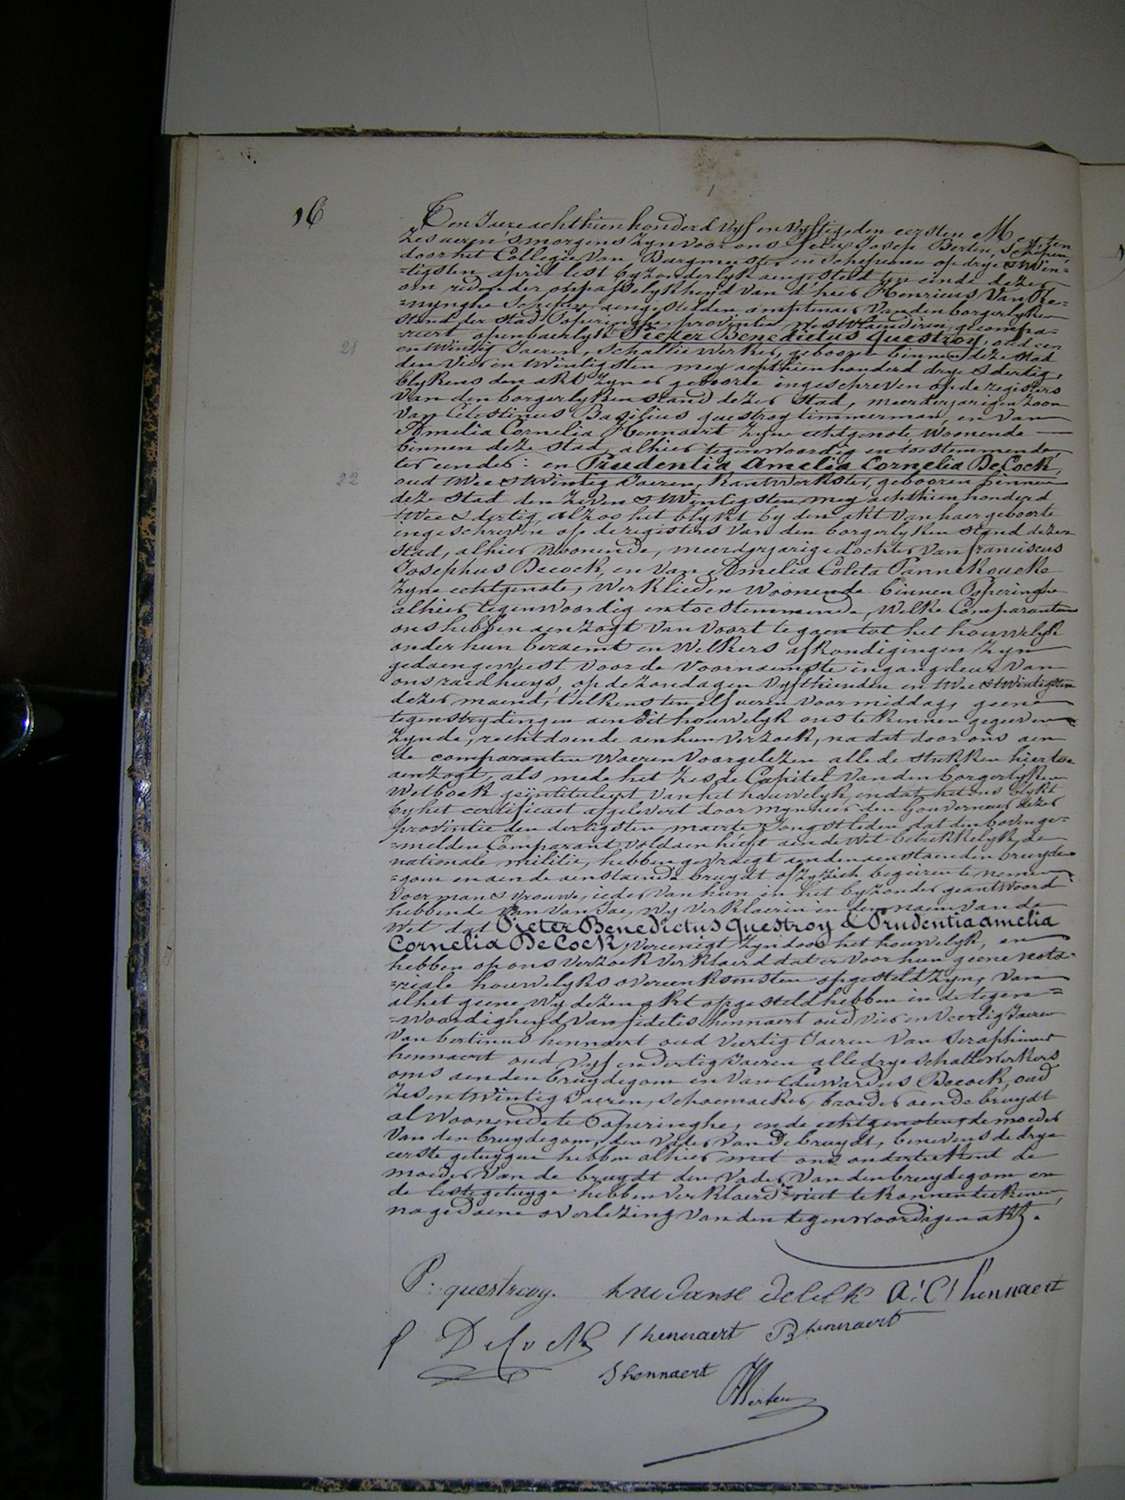 16
Ten Jaere achthien honderd vyf en vyftig den eersten Mey, ten
zes ueren 's morgens zyn voor ons Felix Josef Berten, Schepen,
door het Collegie van Burgmeester en Schepenen op drye & twin-
=tigsten april lest byzonderlyk aengesteld ten einde dezer
om reden der onpasselykheyd van d'heer Henricus Van Re-
=nynghe Schepen aengestelden amptenaer van den borgerlyken
stand der stad Poperinghe, provintie Westvlaenderen, gecompa-
=reert openbaerlyk Pieter Benedictus Questroy, oud een
21
en twintig Jaeren, Schalliewerker, geboren binnen deze stad
den vier en twintigsten mey achthien honderd drye & dertig,
blykens den akt zyner geboorte ingeschreven op de registers
van den borgerlyken stand dezer stad, meerderjarigen zoon
van Celestinus Basilius questroy timmerman, en van
Amelia Cornelia Hennaert zyne echtgenote, woonende
binnen deze stad, alhier tegenwoordig en toestemmende
ter eender: en Prudentia Amelia Cornelia DeCock,
22
oud twee & twintig Jaeren, kantwerkster, gebooren binnen
deze stad den zeven & twintigsten mey achthien honderd
twee & dertig, alzoo het blykt by den akt van haer geboorte
ingeschreven op de registers van den borgerlyken stand dezer
stad, alhier woonende, meerderjarige dochter van franciscus
Josephus Decock, en van Amelia Coleta Pannekoucke
zyne echtgenote, werklieden woonende binnen Poperinghe
alhier tegenwoordig en toestemmende, welke Comparanten
ons hebben aenzogt van voort te gaen tot het houwelyk
onder hun beraemt en welkers afkondigingen zyn
gedaen geweest voor de voornaemste ingangdeur van
ons raedhuys, op de zondagen vyfthienden en twee & twintigsten
dezer maend, telkens ten elf ueren voormiddag, geene
tegenstrydingen aen dit houwelyk ons te kennen gegeven
zynde, rechtdoende aen hun verzoek, na dat door ons aen
de comparanten waeren voorgelezen alle de stukken hiertoe
aenzogt, als mede het zesde Capitel van den borgerlyken
Wetboek geintituleyt van het houwelyk, en dat het ons blykt
by het certificaet afgelevert door mynheer den Gouverneur dezer
provintie den dertigsten maerte Jongstleden dat den bovenge-
=melden Comparant voldaen heeft aen de wet betrekkelyk de
nationale militie, hebben gevraegt aen den aenstaenden bruyde-
=gom en aen de aenstaende bruydt of zy zich begeiren te nemen
voor man & vrouwe, ieder van hun in het byzonder geantwoord
hebbende van Jae, wy verklaeren in den naem van de
Wet dat Pieter Benedictus Questroy & Prudentia amelia
Cornelia De Cock, vereenigt zyn door het houwelyk, en
hebben op ons verzoek verklaerd dat er voor hun geene nota-
=riale houwelyks overeenkomsten opgesteld zyn, van
al het geene wy dezen akt opgesteld hebben in de tegen=
=woordigheyd van fidelis hennaert oud vier en veertig Jaeren
van bertinus hennaert oud veertig Jaeren van Seraphinus
hennaert oud vyf en dertig Jaeren alle drye Schaliewerkers
oms aen den bruydegom en van Eduwardus Decock, oud
zes en twintig Jaeren, Schoenmaeker, broeder aen de bruydt
al woonende te Poperinghe, en de echtgenoten, de moeder
van den bruydegom, den vader van de bruydt, benevens de drye
eerste getuygen hebben alhier met ons onderteekent de
moeder van de bruydt den vader van den bruydegom en
de leste getuyge hebben verklaerd niet te konnen teekenen,
na gedaene overlezing van den tegenwoordigen akt.
P. questroy. A. C. hennaert
f DeCock f hennaert B hennaert
S hennaert
Berten